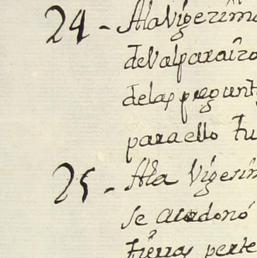 24 - Ala Vigezima
de Valparaizo
delas pregunt
para ello fu
25 - Ala Vigezim
se acodonó
tierras perte